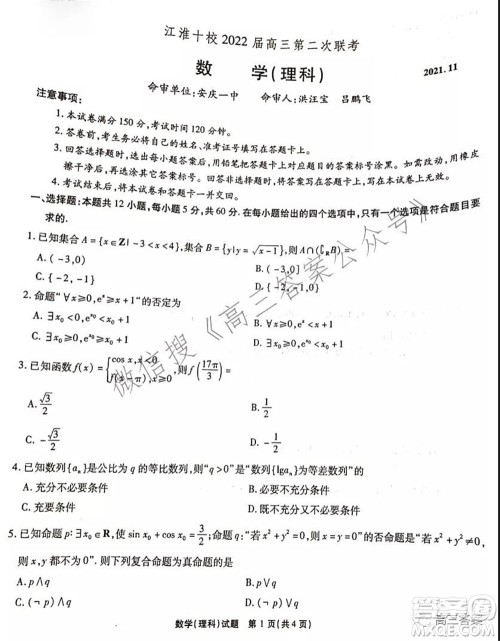 江淮十校2022届高三第二次联考
数 学(理科)
2021.11
命审单位:安庆一中 命审人:洪汪宝 吕鹏飞
注意事项:
1.本试卷满分150分,考试时间120分钟。
2.答卷前,考生务必将自己的姓名、准考证号填写在答题卡上。
3.回答选择题时,选出每小题答案后,用铅笔把答题卡对应题目的答案标号涂黑。如需改动,用橡皮
擦干净后,再选涂其它答案标号。回答非选择题时,将答案写在答题卡上。写在本试卷上无效。
4.考试结束后,将本试卷和答题卡一并交回。
一、选择题:本题共12小题,每小题5分,共60分。在每小题给出的四个选项中,只有一个选项是符合题目要
求的.
1.已知集合A={x∈Z|-3<x<4},集合B={y|y=√(x-1)},则A∩(∁_R B)=
A.(-3,0) B.(-3,0]
C.{-2,-1} D.{-2,-1,0}
2.命题“∀x≥0,eˣ≥x+1”的否定为
A.∃x₀<0,e^{x₀}<x₀+1 B.∃x₀≥0,e^{x₀}<x₀+1
C.∃x₀<0,e^{x₀}≥x₀+1
3.已知函数f(x)={cos x,x<0
f(x-π),x≥0,则f(17π/3)=
A.√3/2 B.1/2
C.-√3/2 D.-1/2
4.已知数列{aₙ}是公比为q的等比数列,则“q>0”是“数列{lgaₙ}为等差数列”的
A.充分不必要条件 B.必要不充分条件
C.充要条件 D.既不充分也不必要条件
5.已知命题p:∃x₀∈R,使sin x₀+cos x₀=3/2;命题q:“若x²+y²≠0,
则x,y都不为0”.则下列复合命题为真命题的是
A.p∧q B.p∨q
C.(¬p)∧q
数学(理科)试题 第1页(共4页)
微信搜《高三答案公众号》
高三答案